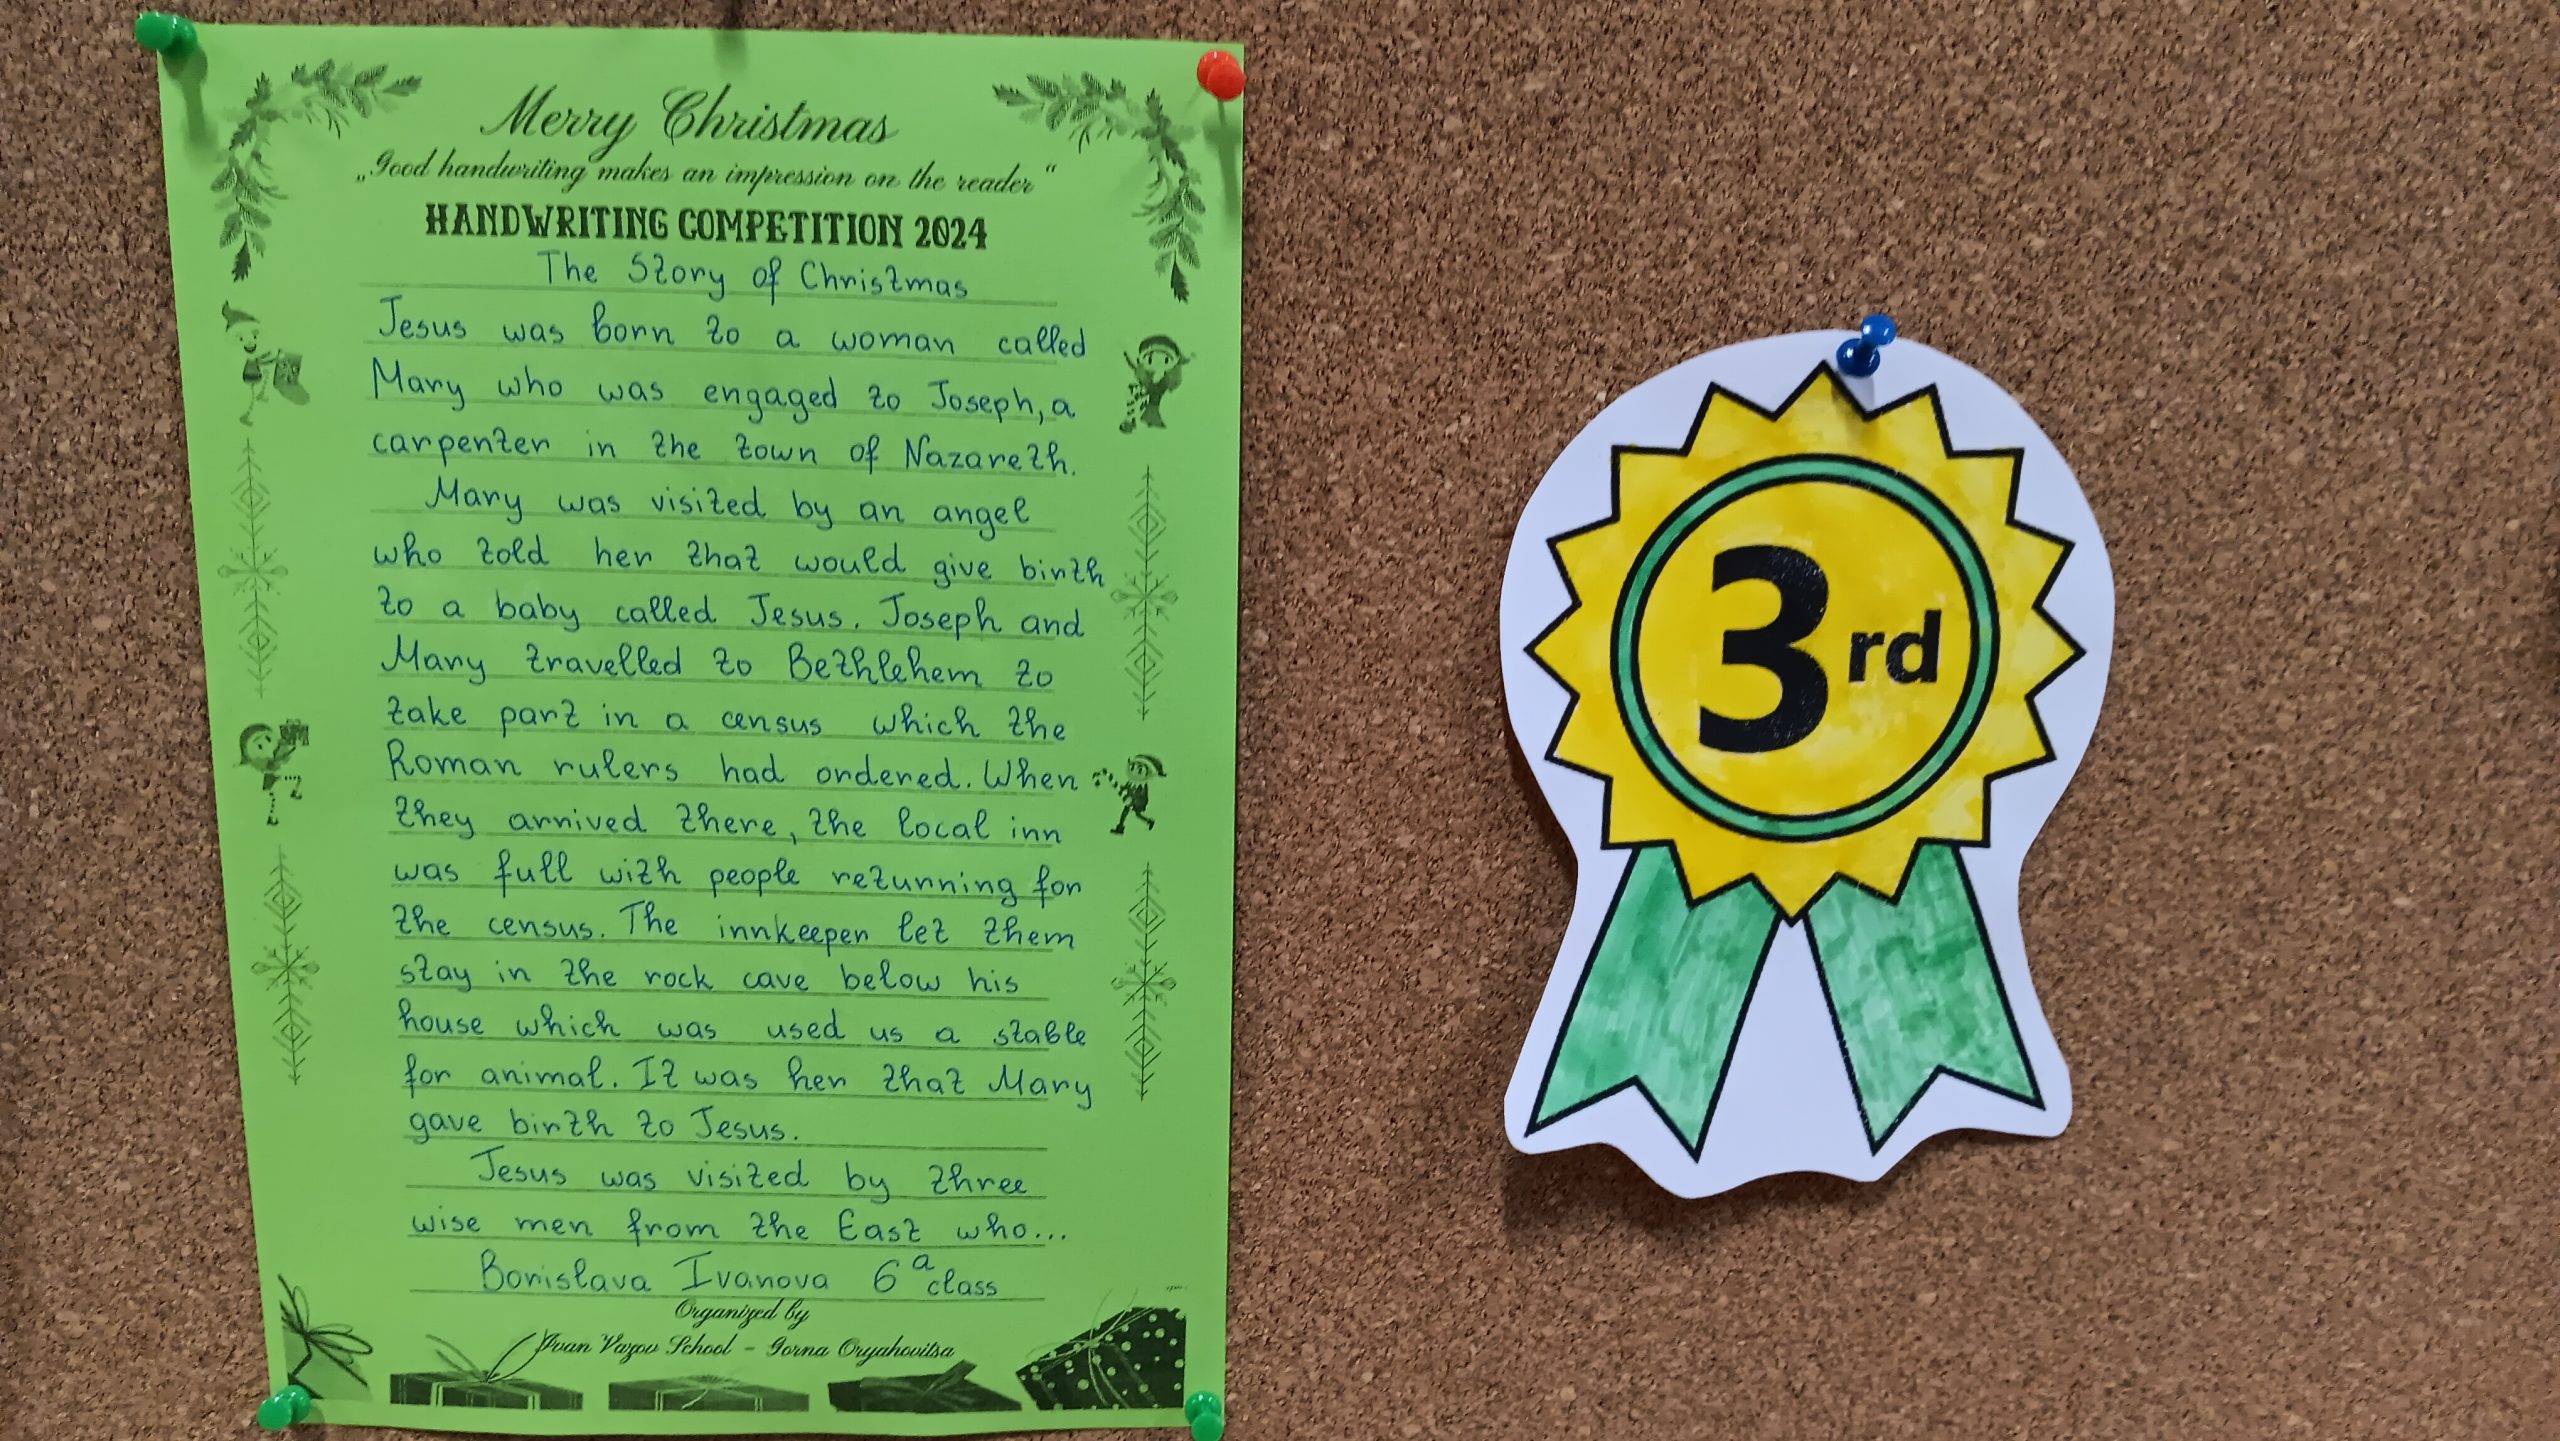 Merry Christmas
„Good handwriting makes an impression on the reader“
HANDWRITING COMPETITION 2024
The Story of Christmas
Jesus was born to a woman called
Mary who was engaged to Joseph, a
carpenter in the town of Nazareth.
Mary was visited by an angel
who told her that would give birth
to a baby called Jesus. Joseph and
Mary travelled to Bethlehem to
take part in a census which the
Roman rulers had ordered. When
they arrived there, the local inn
was full with people returning for
the census. The innkeeper let them
stay in the rock cave below his
house which was used us a stable
for animal. It was her that Mary
gave birth to Jesus.
Jesus was visited by three
wise men from the East who...
Borislava Ivanova 6a class
Organized by
Ivan Vazov School - Gorna Oryahovitsa
3rd